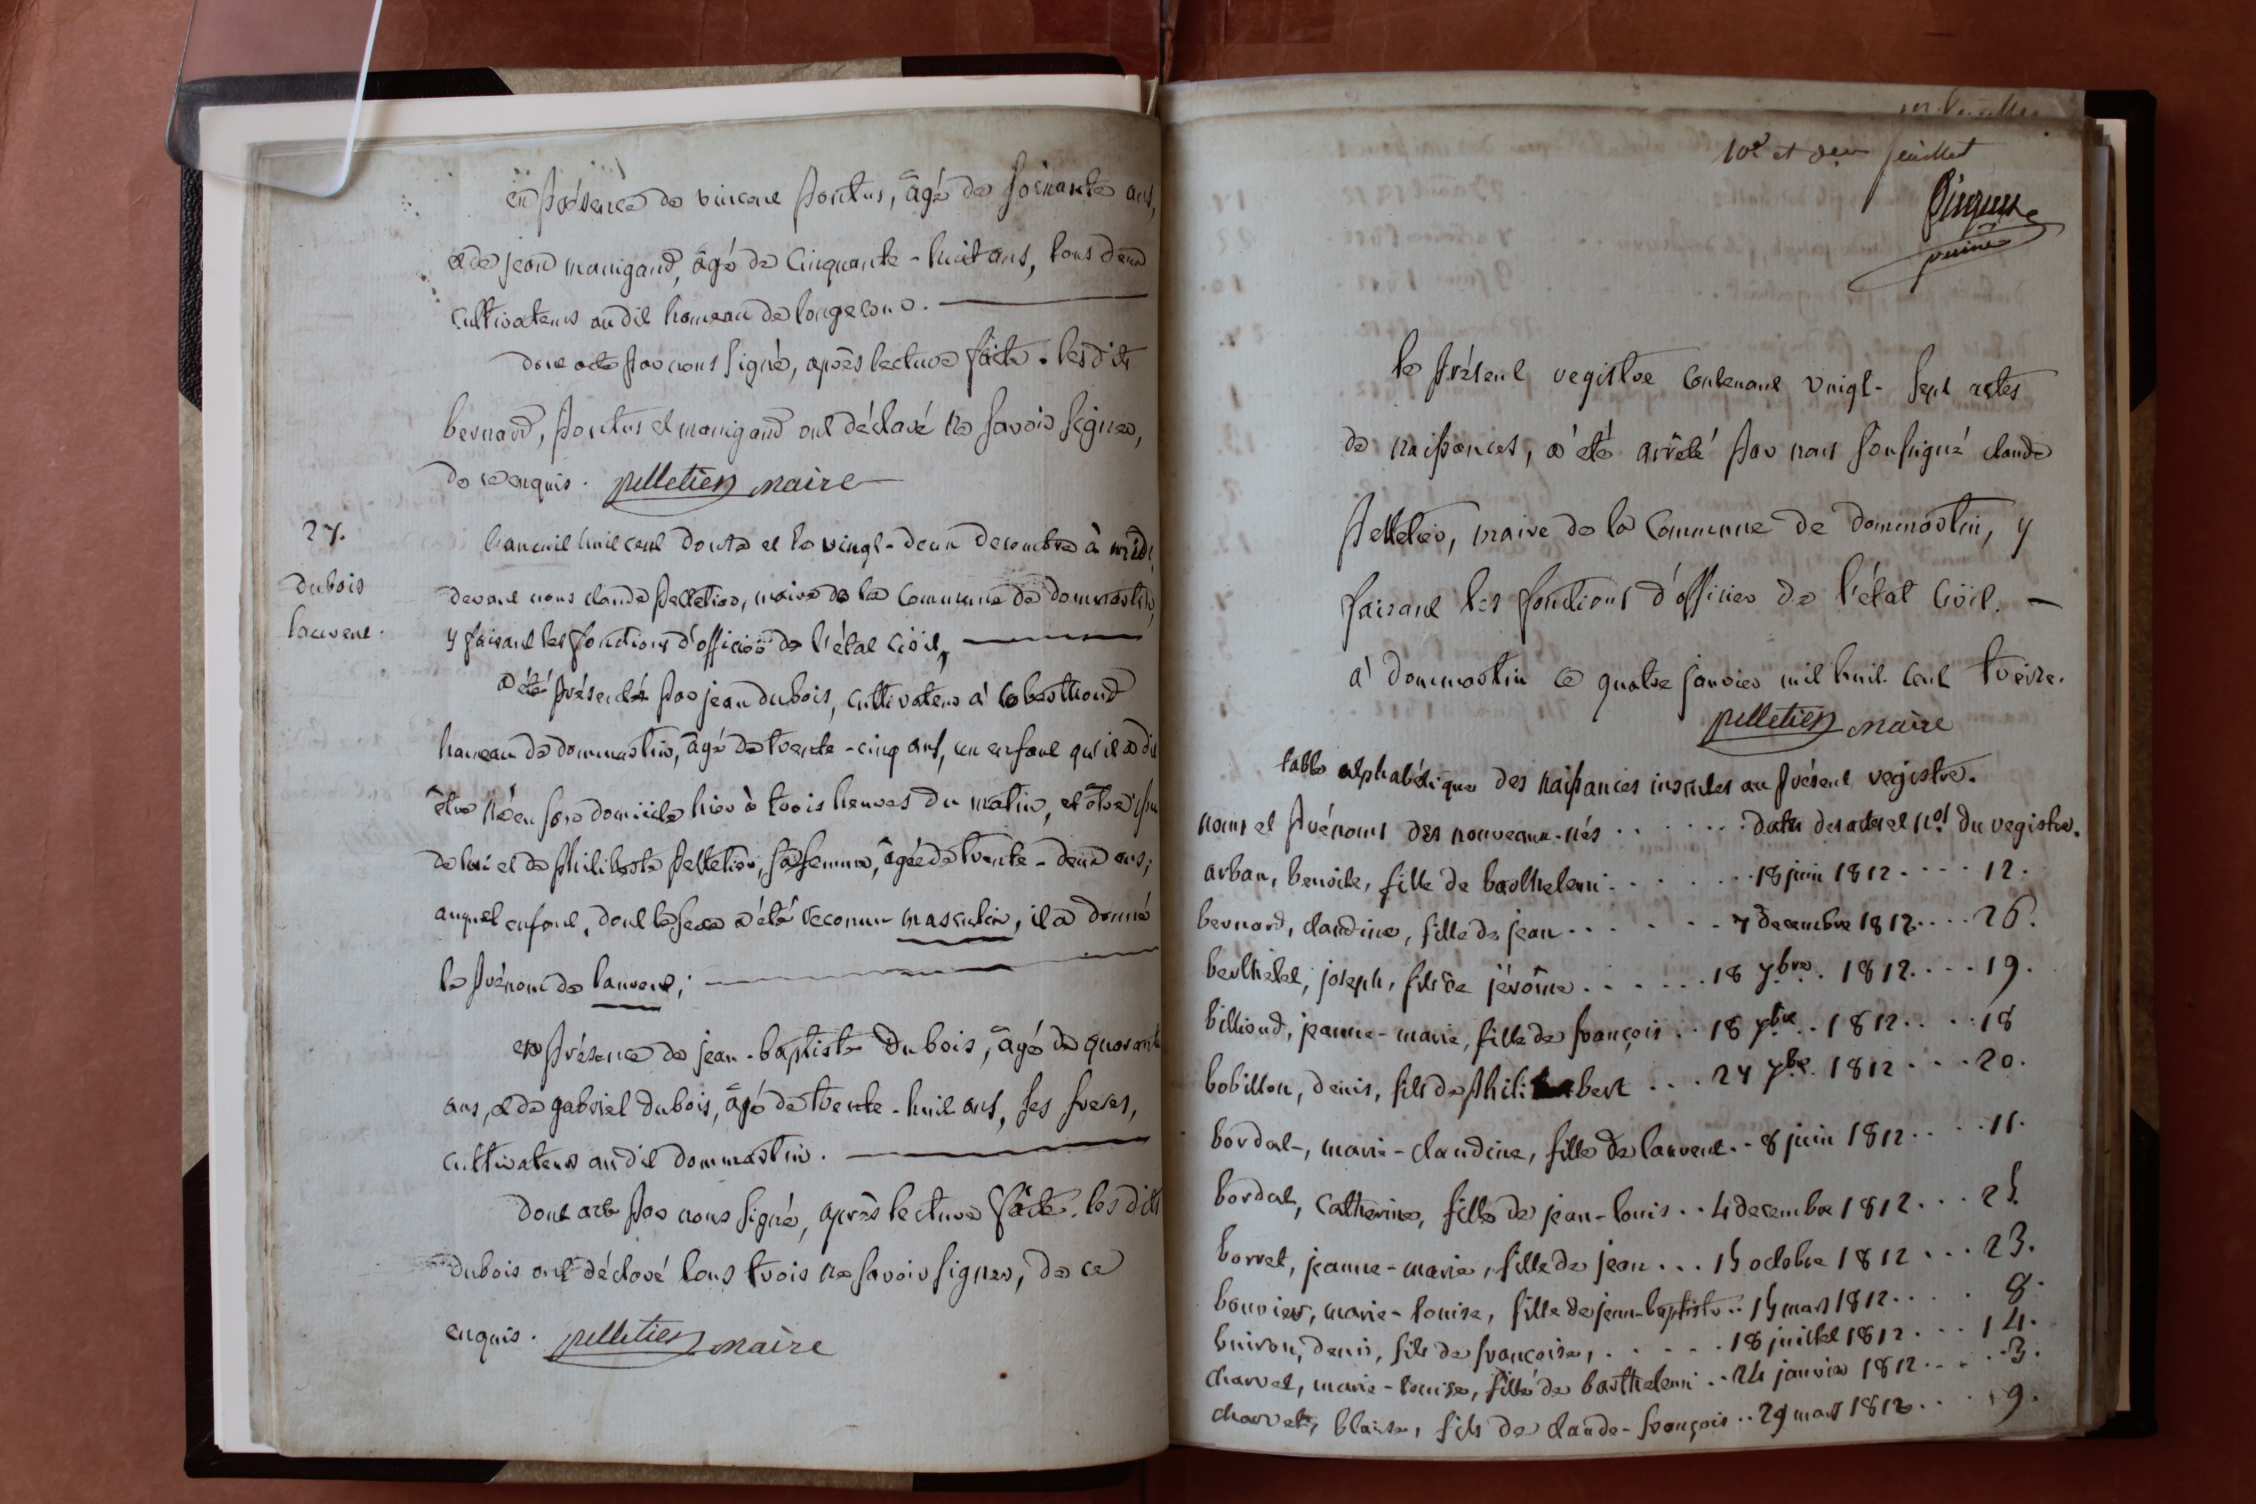 en présence de vincent pontus, âgé de soixante ans,
et de jean manigand, âgé de cinquante-huit ans, tous deux
cultivateurs au dit hameau de longecour.
dont acte par nous signé, après lecture faite. les dits
bernard, pontus et manigand ont déclaré ne savoir signer,
de ce enquis. pelletier maire
27.
dubois
laurent.
l'an mil huit cent douze et le vingt-deux decembre à midi,
devant nous claude pelletier, maire de la commune de dommartin,
y faisant les fonctions d'officier de l'état civil,
a été présenté par jean dubois, cultivateur à
hameau de dommartin, âgé de trente-cinq ans, un enfant qu'il a dit
être né en son domicile hier à trois heures du matin, et être issu
de lui et de philiberte pelletier, sa femme, âgée de trente-deux ans;
auquel enfant, dont le sexe a été reconnu masculin, il a donné
le prénom de laurent;
en présence de jean-baptiste dubois, âgé de quarante
ans, et de gabriel dubois, âgé de trente-huit ans, ses freres,
cultivateurs au dit dommartin.
dont acte par nous signé, après lecture faite. les dits
dubois ont déclaré tous trois ne savoir signer, de ce
enquis. pelletier maire
10e et der feuillet
le présent registre contenant vingt-sept actes
de naissances, a été arrêté par nous soussigné claude
pelletier, maire de la commune de dommartin, y
faisant les fonctions d'officier de l'état civil.
à dommartin ce quatre janvier mil huit cent treize.
pelletier maire
table alphabétique des naissances inscrites au présent registre.
noms et prénoms des nouveaux-nés . . . . . . dates des actes et nos. du registre.
arban, benoite, fille de barthelemi . . . . . . . 18 juin 1812 . . . . 12.
bernard, claudine, fille de jean . . . . . . . 7 decembre 1812 . . . . 26.
berthelet, joseph, fils de jérôme . . . . . . 18 7bre. 1812 . . . . 19.
billioud, jeanne-marie, fille de françois . . 18 7bre . . 1812 . . . . 18
bobillon, denis, fils de philibert . . . . 24 7bre. 1812 . . . . 20.
bordat, marie-claudine, fille de laurent . . 8 juin 1812 . . . . . 11.
bordat, catherine, fille de jean-louis . . 4 decembre 1812 . . . 25.
borret, jeanne-marie, fille de jean . . . 15 octobre 1812 . . . 23.
bouvier, marie-louise, fille de jean-baptiste . . 15 mars 1812 . . . . . 8.
buiron, denis, fils de françoise, . . . . . . 18 juillet 1812 . . . 14.
charvet, marie-louise, fille de barthelemi . . 24 janvier 1812 . . . . . 3.
charvet, blaise, fils de claude-françois . . 29 mars 1812 . . . . 9.